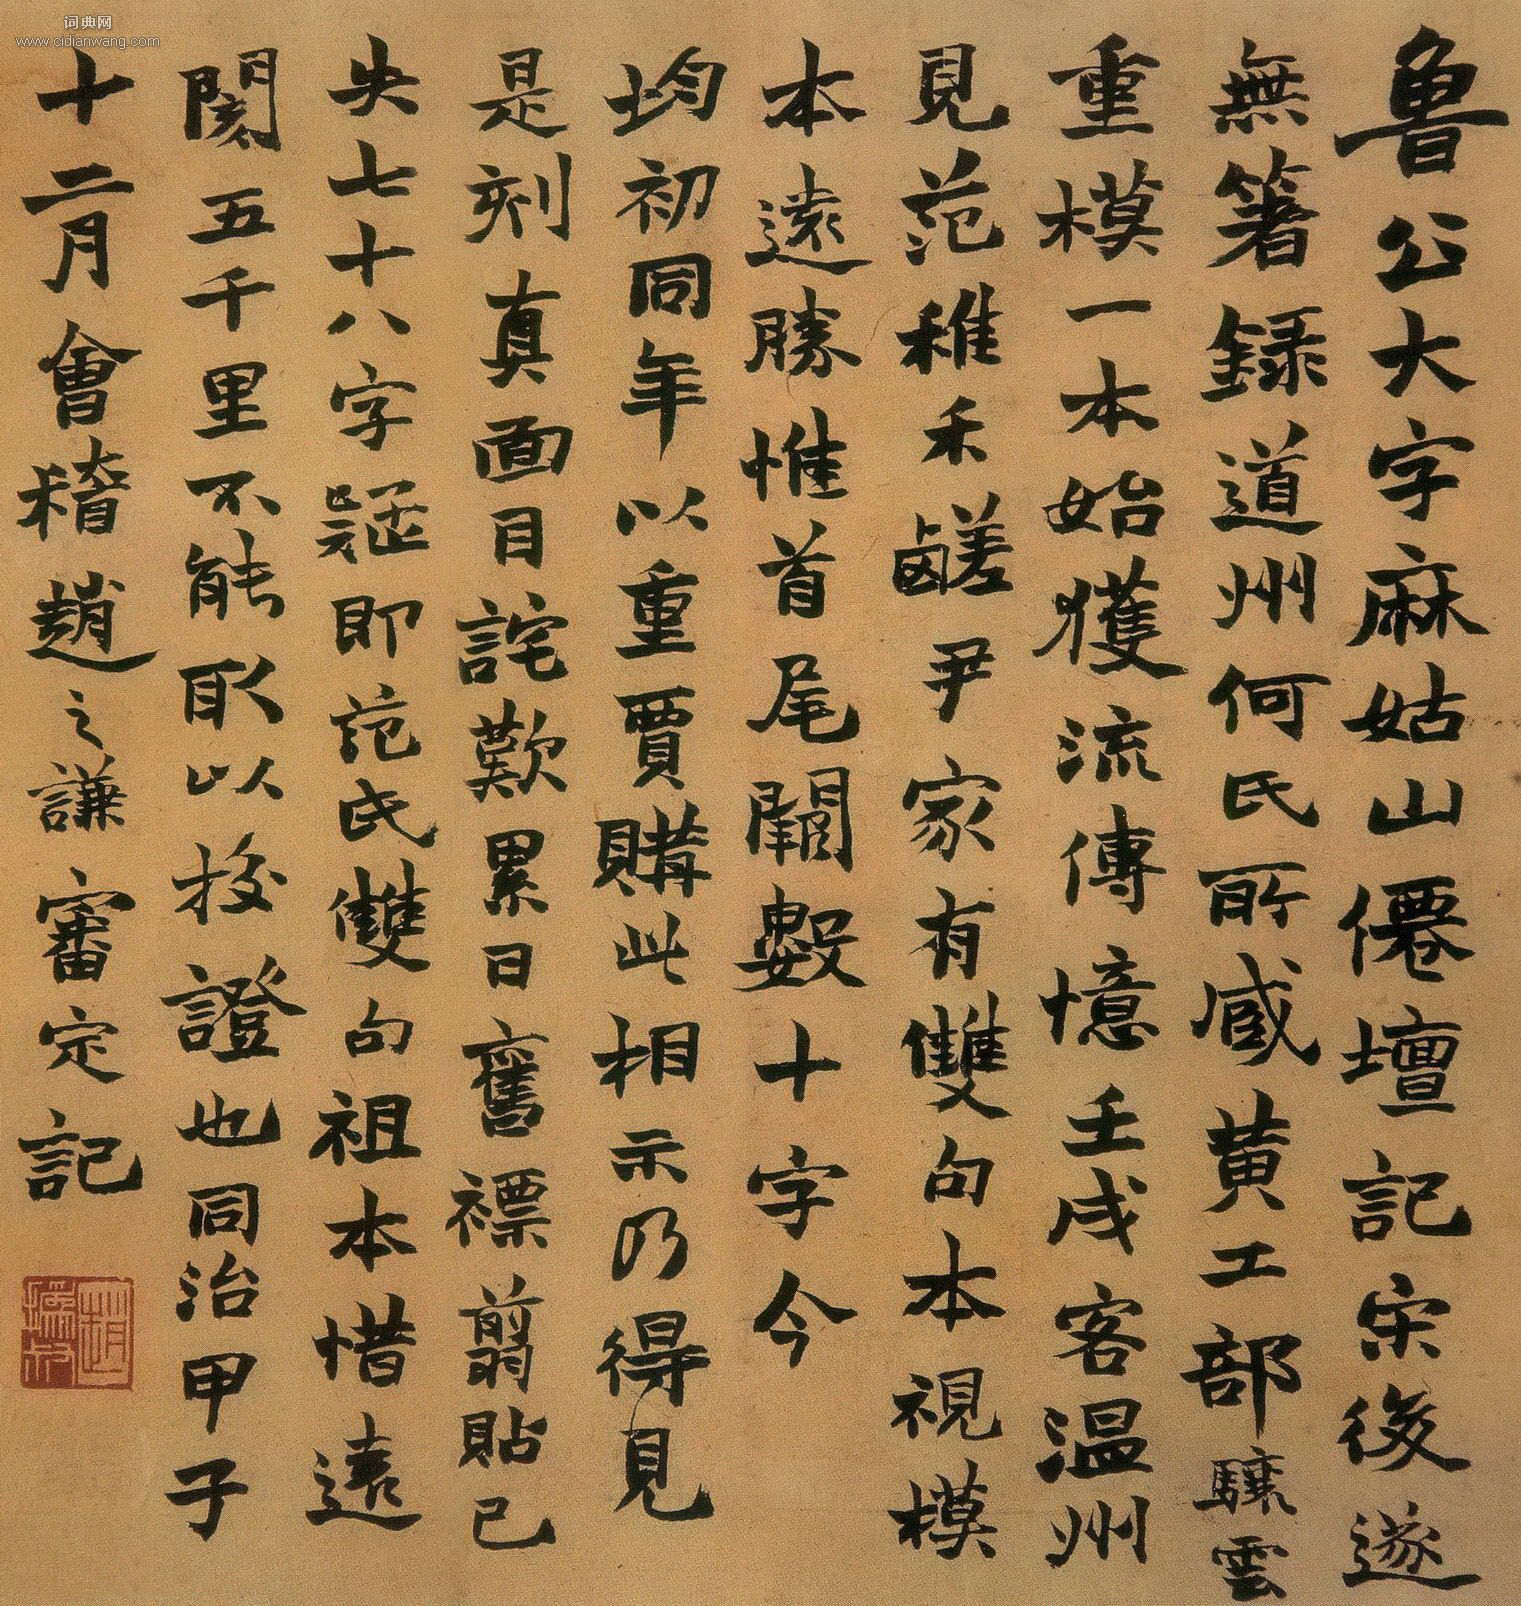 词典网
www.cidianwang.com
魯公大字麻姑山僊壇記宋後遂
無箸録道州何氏所臧黄工部驤雲
重橅一本始獲流傳憶壬戌客温州
見范稚禾鹺尹家有雙句本視橅
本遠勝惟首尾闕數十字今
均初同年以重賈購此相示乃得見
是刻真面目詫歎累日舊褾翦貼已
失七十八字疑即范氏雙句祖本惜遠
閡五千里不能取以校證也同治甲子
十二月會稽趙之謙審定記
趙撝叔